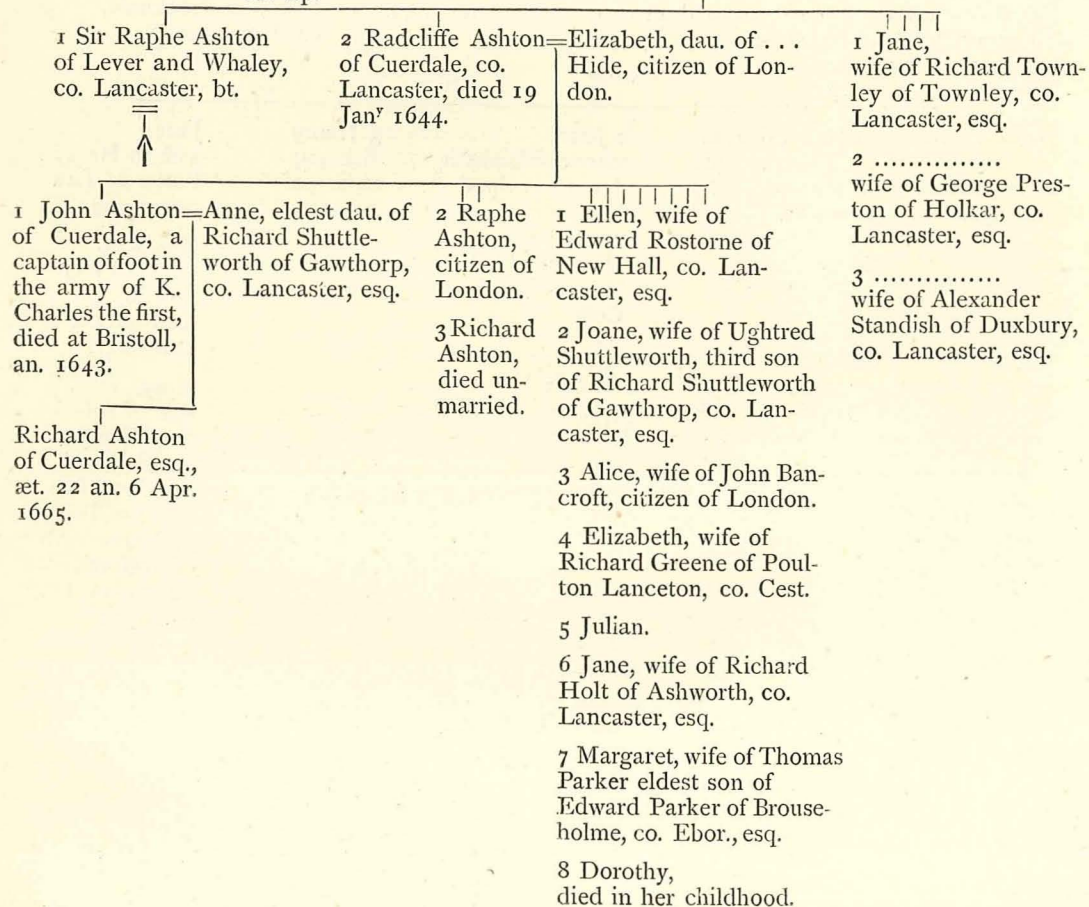 1 Sir Raphe Ashton
of Lever and Whaley,
co. Lancaster, bt.
2 Radcliffe Ashton=Elizabeth, dau. of . . .
of Cuerdale, co.
Lancaster, died 19
Janʸ 1644.
Hide, citizen of Lon-
don.
1 Jane,
wife of Richard Town-
ley of Townley, co.
Lancaster, esq.
2 ...............
wife of George Pres-
ton of Holkar, co.
Lancaster, esq.
3 ...............
wife of Alexander
Standish of Duxbury,
co. Lancaster, esq.
1 John Ashton=Anne, eldest dau. of
of Cuerdale, a
captain of foot in
the army of K.
Charles the first,
died at Bristoll,
an. 1643.
Richard Shuttle-
worth of Gawthorp,
co. Lancaster, esq.
2 Raphe
Ashton,
citizen of
London.
3 Richard
Ashton,
died un-
married.
1 Ellen, wife of
Edward Rostorne of
New Hall, co. Lan-
caster, esq.
2 Joane, wife of Ughtred
Shuttleworth, third son
of Richard Shuttleworth
of Gawthrop, co. Lan-
caster, esq.
3 Alice, wife of John Ban-
croft, citizen of London.
4 Elizabeth, wife of
Richard Greene of Poul-
ton Lanceton, co. Cest.
5 Julian.
6 Jane, wife of Richard
Holt of Ashworth, co.
Lancaster, esq.
7 Margaret, wife of Thomas
Parker eldest son of
Edward Parker of Brouse-
holme, co. Ebor., esq.
8 Dorothy,
died in her childhood.
Richard Ashton
of Cuerdale, esq.,
æt. 22 an. 6 Apr.
1665.